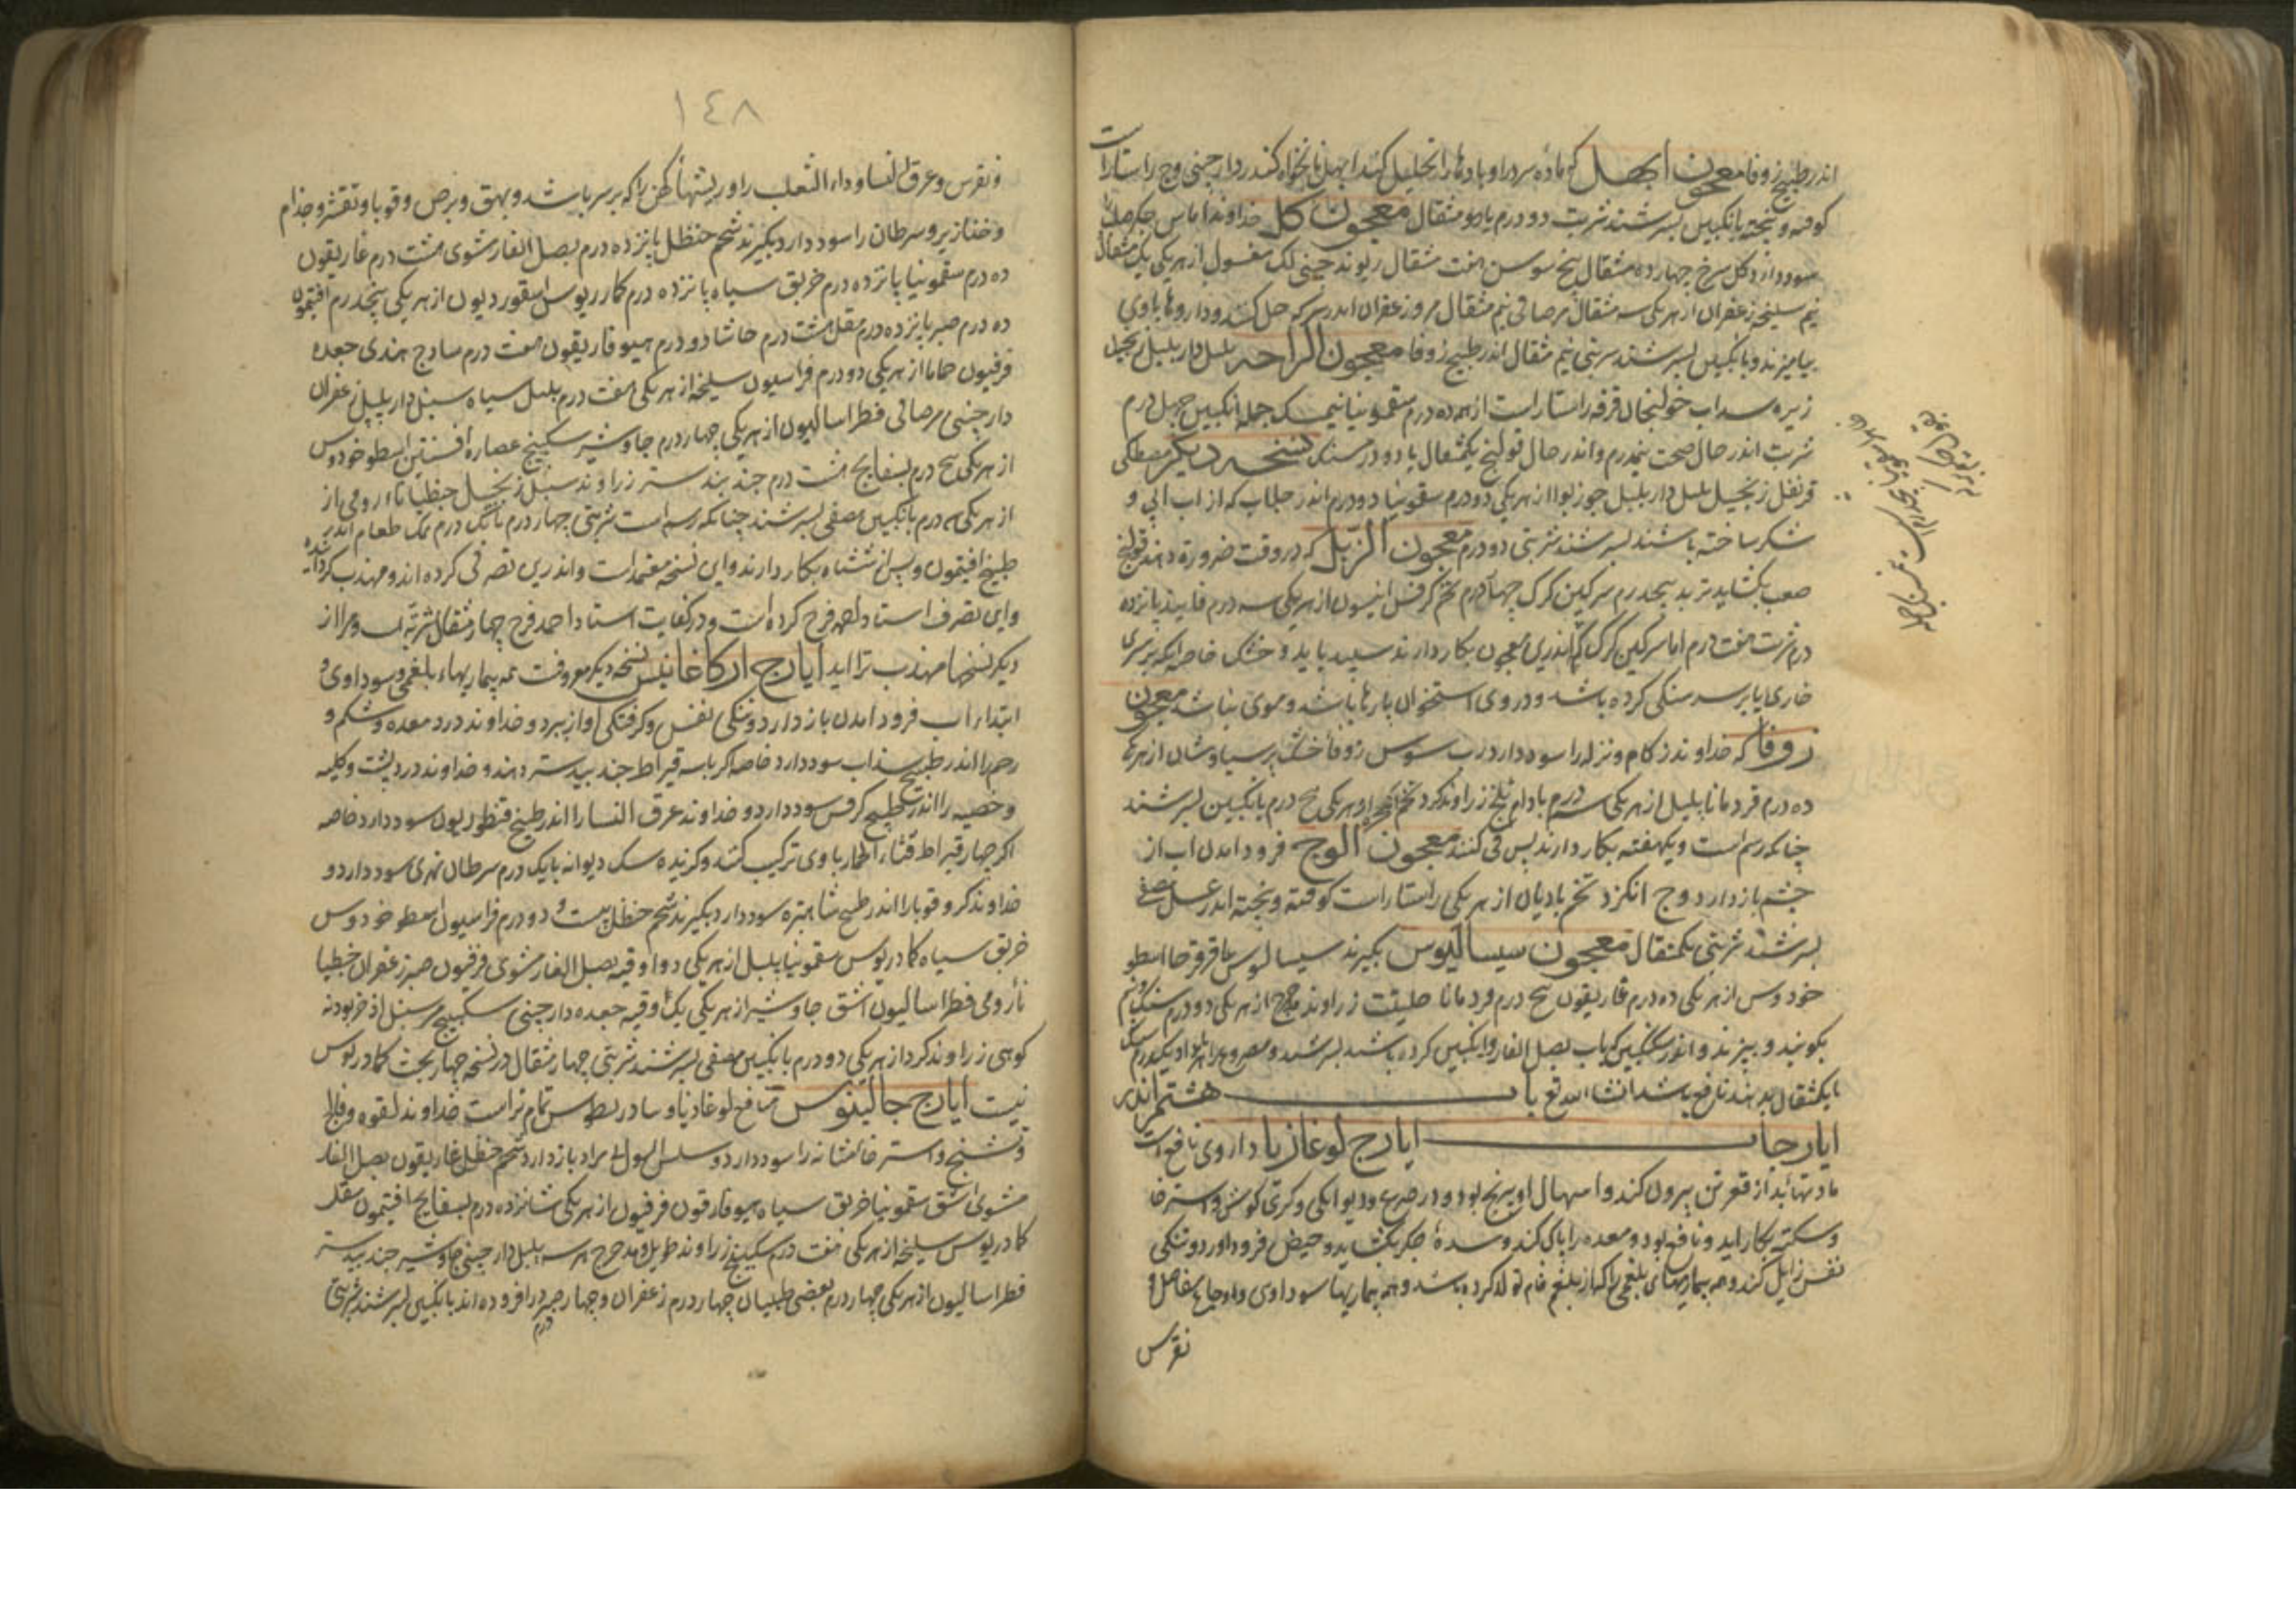 اندر طبیخ زوفا معجون ابهل که ماده سرد را و بادها را تحلیل کند ابهل نانخواه کندر دارچینی وج راستاراست
کوفته و بیخته بانگبین بسرشند شربت دو درم یا دو مثقال معجون کل خداوند اماس جکر صلب را
سود دارد کل سرخ چهارده مثقال بیخ سوسن هفت مثقال ریوند چینی لک مغسول از هر یکی یک مثقال
نیم سلیخه زعفران از هر یکی سه مثقال مر صافی نیم مثقال مر و زعفران اندر سرکه حل کنند و داروها با وی
بیامیزند و بانگبین بسرشند شربتی نیم مثقال اندر طبیخ زوفا معجون الراحه بلبل دار بلبل زنجبیل
زیره سداب خولنجان قرفه راستاراست از همه ده درم سقمونیا نیمسک جمله انکبین چهل درم
شربت اندر حال صحت پنجدرم و اندر حال قولنج یکمثقال یا دو درمسنک نسخه دیکر مصطکی
قرنفل زنجبیل بلبل دار بلبل جوزبوا از هر یکی دو درم سقمونیا دو درم اندر جلاب که از اب ابی و
شکر ساخته باشند بسرشند شربتی دو درم معجون الزبل که در وقت ضرورة دهند قولنج
صعب بکشاید تربد پنجدرم سرکین کرک چهار درم تخم کرفس انیسون از هر یکی سه درم فانیذ پانزده
درم شربت هفت درم اما سرکین کرک که اندرین معجون بکار دارند سپید باید و خشک خاصه انکه بر سری
خاری یا بر سر سنکی کرده باشد و در وی استخوان پارها باشد و موی نباشد معجون
زوفا که خداوند زکام و نزله را سود دارد رب سوس زوفا خشک پرسیاوشان از هر یکی
ده درم قردمانا بلبل از هر یکی سه درم بادام تلخ زراوند کرد تخم انجره از هر یکی پنج درم بانکبین بسرشند
چنانکه رسم است و یکهفته بکار دارند پس قی کنند معجون الوج فرود امدن اب از
چشم باز دارد وج انکزد تخم بادیان از هر یکی راستاراست کوفته و بیخته اندر عسل مصفی
بسرشند شربتی یکمثقال معجون سیسالیوس بکیرند سیسالیوس عاقرقرحا اسطو
خودوس از هر یکی ده درم غاریقون پنج درم قردمانا حلتیت زراوند مدحرج از هر یکی دو درم
بکوبند و ببیزند و اندر سکنکبین که باب بصل الفار و انکبین کرده باشند بسرشند
یا یکمثقال بدهند نافع باشد انشا الله تع باب هشتم اندر
ایارجات ایارج لوغازیا داروی نافع است
مادتها بد از قعر تن بیرون کند و اسهال او بیرنج بود و در صرع و دیوانکی و کری کوش و استرخا
و سکته بکار اید و نافع بود و معده را پاک کند و سده جکر بکشاید و حیض فرود اورد و تنکی
نفس زایل کند و همه بیماریهای بلغمی را که از بلغم خام تولد کرده باشد و همه بیماریها سوداوی و اوجاع مفاصل و
نقرس
١٤٨
و نقرس و عرق النسا و داء الثعلب را و ریشهاء کهن را که بر سر باشد و بهق و برص و قوبا و تقشر و جذام
و خنازیر و سرطان را سود دارد بکیرند شحم حنظل پانزده درم بصل الفار مشوی هشت درم غاریقون
ده درم سقمونیا پانزده درم خربق سیاه پانزده درم کمادریوس اسقوردیون از هر یکی پنجدرم افتیمون
ده درم صبر پانزده درم مقل هشت درم حاشا دو درم هیوفاریقون هفت درم ساذج هندی جعده
فرفیون حماما از هر یکی دو درم فراسیون سلیخه از هر یکی هفت درم بلبل سیاه سنبل دار بلبل زعفران
دارچینی مر صافی فطراسالیون از هر یکی چهار درم جاوشیر سکبینج عصاره افسنتین اسطوخودوس
از هر یکی پنج درم بسفایج هشت درم جند بیدستر زراوند سنبل زنجبیل جنطیانا رومی از
از هر یکی سه درم بانکبین مصفی بسرشند چنانکه رسم است شربتی چهار درم با یک درم نمک طعام اندر
طبیخ افتیمون و پس از ششماه بکار دارند و این نسخه معتمد است و اندرین تصرفی کرده اند و مهذب کردانیده
و این تصرف استاد احمد فرج کرده است و در کفایت استاد احمد فرج چهار مثقال شربت است و مرا از
دیکر نسخها مهذب تر اید ایارج ارکاغانیس نسخه دیکر معروفست همه بیماریهاء بلغمی و سوداوی و
ابتداء اب فرود امدن باز دارد و تنکی نفس و کرفتکی اواز ببرد و خداوند درد معده و شکم و
رحم را اندر طبیخ سذاب سود دارد خاصه اکر با سه قیراط جند بیدستر دهند و خداوند درد پشت و کلیه
و خصیه را اندر طبیخ کرفس سود دارد و خداوند عرق النسا را اندر طبیخ قنطوریون سود دارد خاصه
اکر چهار قیراط قثاء الحمار با وی ترکیب کنند و کزیده سک دیوانه با یک درم سرطان نهری سود دارد و
خداوند کر و قوبا را اندر طبیخ شاهتره سود دارد بکیرند شحم حنظل بیست و دو درم فراسیون اسطوخودوس
خربق سیاه کمادریوس سقمونیا بلبل از هر یکی دو اوقیه بصل الفار مشوی فرفیون صبر زعفران جنطیا
نا رومی فطراسالیون اشق جاوشیر از هر یکی یک اوقیه جعده دارچینی سکبینج مر سنبل اذخر بودنه
کوهی زراوند کرد از هر یکی دو درم بانکبین مصفی بسرشند شربتی چهار مثقال در نسخه چهاربخت کمادریوس
نیست ایارج جالینوس منافع لوغاذیا و تیادریطوس تمام تر است خداوند لقوه و فالج
و تشنج و استرخا مثانه را سود دارد و سلس البول بی مراد باز دارد شحم حنظل غاریقون بصل الفار
مشوی اشق سقمونیا خربق سیاه هیوفارقون فرفیون از هر یکی شانزده درم بسفایج افتیمون مقل
کمادریوس سلیخه از هر یکی هفت درم سکبینج زراوند طویل و مدحرج هر سه بلبل دارچینی جاوشیر جند بیدستر
فطراسالیون از هر یکی چهار درم بعضی طبیبان چهار درم زعفران و چهار درم صبر در افزوده اند بانکبین بسرشند شربتی